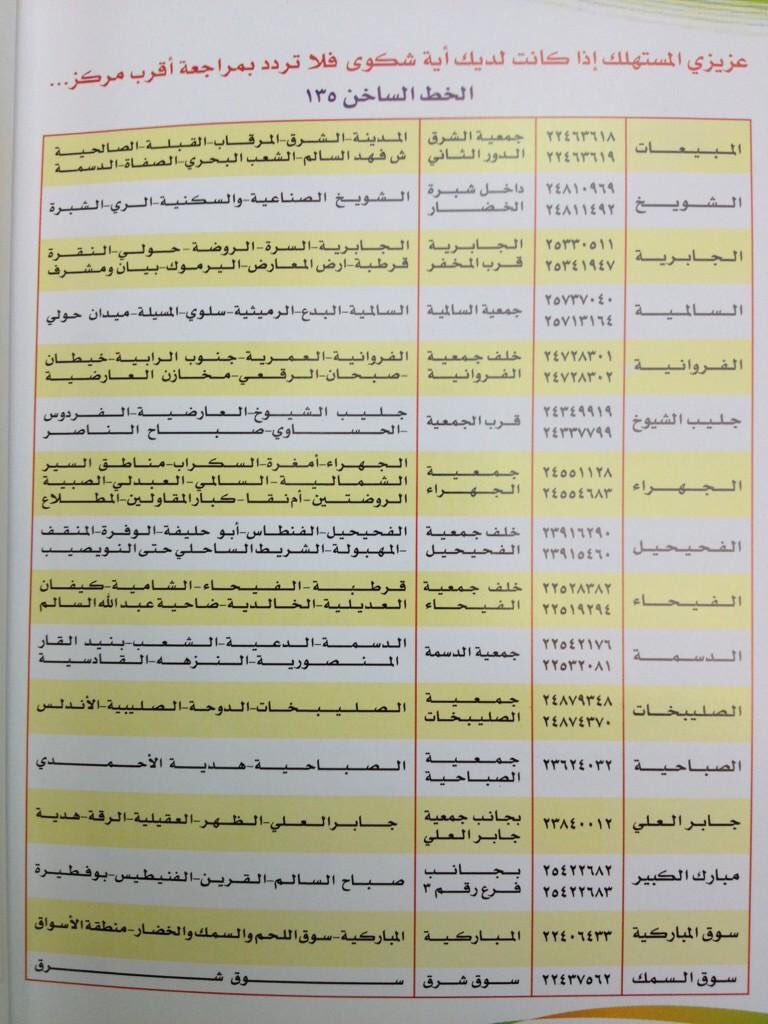 عزيزي المستهلك إذا كانت لديك أية شكوى فلا تردد بمراجعة أقرب مركز...
الخط الساخن ١٣٥
المبيعات ٢٢٤٦٣٦١٨ جمعية الشرق المدينة-الشرق-المرقاب-القبلة-الصالحية
٢٢٤٦٣٦١٩ الدور الثاني ش فهد السالم-الشعب البحري-الصفاة-الدسمة
الشويخ ٢٤٨١٠٩٦٩ داخل شبرة الشويخ الصناعية-والسكنية-الري-الشبرة
٢٤٨١١٤٩٢ الخضار
الجابرية ٢٥٣٣٠٥١١ الجابرية الجابرية-السرة-الروضة-حولي-النقرة
٢٥٣٤١٩٤٧ قرب المخفر قرطبة-ارض المعارض-اليرموك-بيان ومشرف
السالمية ٢٥٧٣٧٠٤٠ جمعية السالمية السالمية-البدع-الرميثية-سلوي-المسيلة-ميدان حولي
٢٥٧١٣١٦٤
الفروانية ٢٤٧٢٨٣٠١ خلف جمعية الفروانية-العمرية-جنوب الرابية-خيطان
٢٤٧٢٨٣٠٢ الفروانية -صبحان-الرقعي-مخازن العارضية
جليب الشيوخ ٢٤٣٤٩٩١٩ قرب الجمعية جليب الشيوخ-العارضية-الفردوس
٢٤٣٣٧٧٩٩ -الحساوي-صباح الناصر
الجهراء ٢٤٥٥١١٢٨ جمعية الجهراء-أمغرة-السكراب-مناطق السير
٢٤٥٥٤٦٨٣ الجهراء الشمالية-السالمي-العبدلي-الصبية
الروضتين-أم نقا-كبار المقاولين-المطلاع
الفحيحيل ٢٣٩١٦٢٩٠ خلف جمعية الفحيحيل-الفنطاس-أبو حليفة-الوفرة-المنقف
٢٣٩١٥٤٦٠ الفحيحيل -المهبولة-الشريط الساحلي حتى النويصيب
الفيحاء ٢٢٥٢٨٣٨٢ خلف جمعية قرطبة-الفيحاء-الشامية-كيفان
٢٢٥١٩٢٩٤ الفيحاء العديلية-الخالدية-ضاحية عبدالله السالم
الدسمة ٢٢٥٤٢١٧٦ جمعية الدسمة الدسمة-الدعية-الشعب-بنيد القار
٢٢٥٣٢٠٨١ المنصورية-النزهه-القادسية
الصليبخات ٢٤٨٧٩٣٤٨ جمعية الصليبخات-الدوحة-الصليبية-الأندلس
٢٤٨٧٤٣٧٠ الصليبخات
الصباحية ٢٣٦٢٤٠٣٢ جمعية الصباحية-هدية-الأحمدي
الصباحية
جابر العلي ٢٣٨٤٠٠١٢ بجانب جمعية جابر العلي-الظهر-العقيلية-الرقة-هدية
جابر العلي
مبارك الكبير ٢٥٤٢٢٦٨٢ بجانب صباح السالم-القرين-الفنيطيس-بوفطيرة
٢٥٤٢٢٦٨٣ فرع رقم ٣
سوق المباركية ٢٢٤٠٦٤٣٣ المباركية المباركية-سوق اللحم والسمك والخضار-منطقة الأسواق
سوق السمك ٢٢٤٣٧٥٦٢ سوق شرق سوق شرق